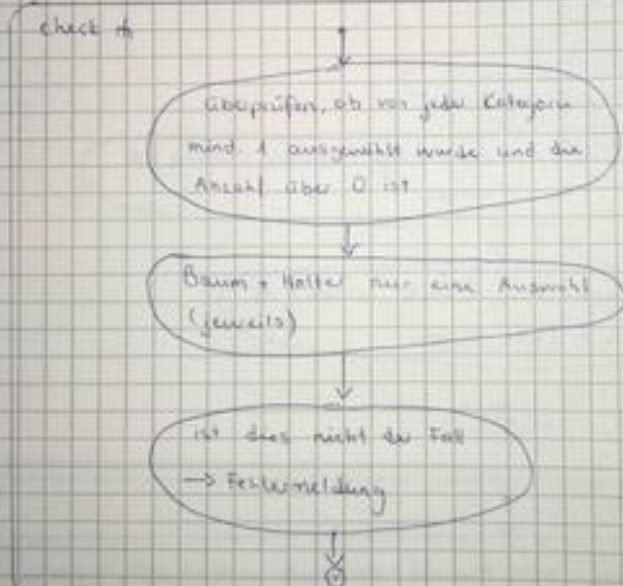 check
überprüfen, ob von jeder Kategorie
mind. 1 ausgewählt wurde und die
Anzahl über 0 ist
Baum + Halter nur eine Auswahl
(jeweils)
ist dies nicht der Fall
-> Fehlermeldung